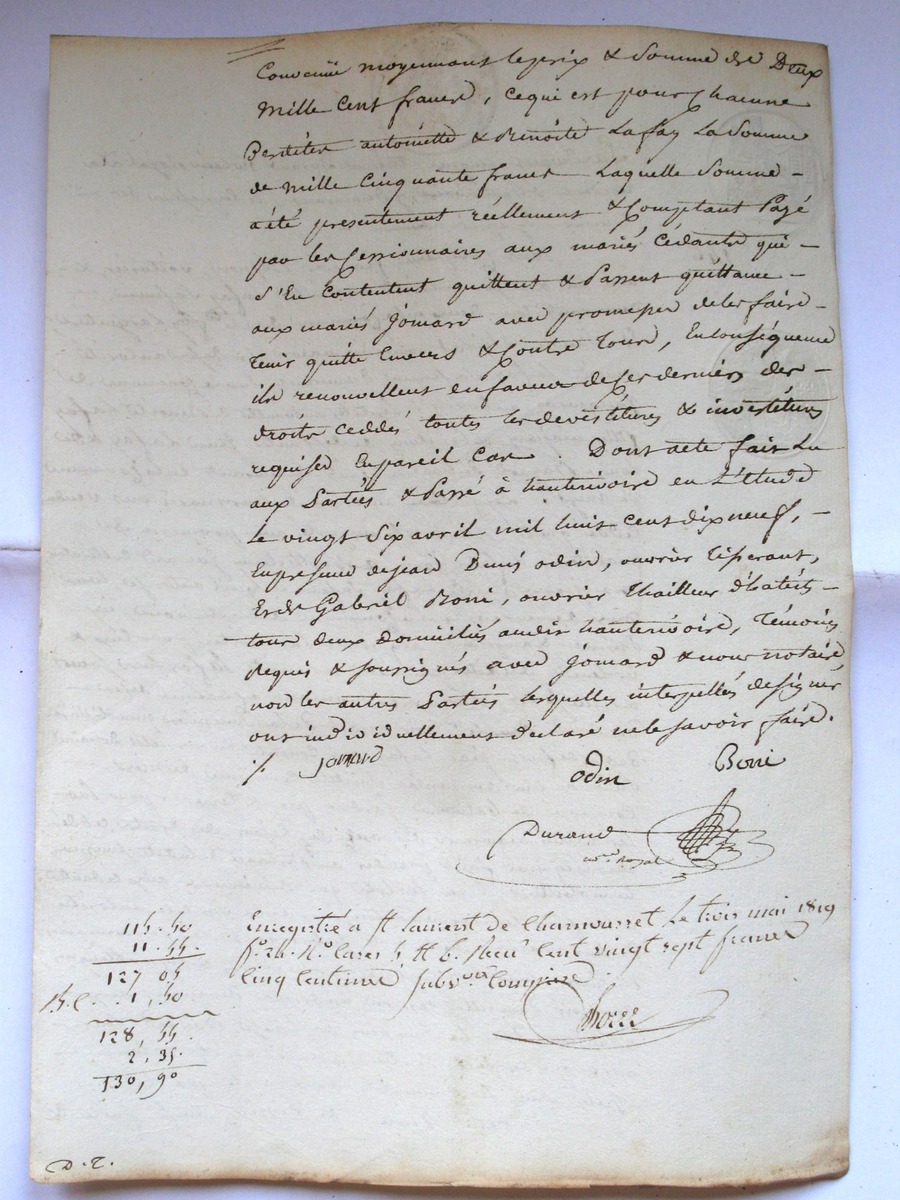 Convenüe moyennant le prix & Somme de Deux
Mille Cent francs, ce qui est pour Chacune
Desdites antoinette & Benoite Laffay La Somme
de mille Cinquante francs Laquelle Somme -
a été présentement réellement & Comptant Payé
par les Cessionnaires aux mariés Cédants qui -
S'En Contentent quittent & Passent quittance -
aux mariés Jomard avec promesse de les faire -
Tenir quitte Envers & Contre Tous, En Conséquence
ils renouvellent en faveur de ces derniers des -
droits Ceddés toutes les devestitures & investitures
requises En pareil Cas. Dont acte fait Lu
aux Parties & Passé à hauterivoire en L'Etude
Le vingt Six avril mil huit cent dix neuf, -
En présence de jean Denis odin, ouvrier Tisserant,
Et de Gabriel Boni, ouvrier Thailleur d'habits -
tous deux domiciliés audit hauterivoire, Témoins
Requis & soussignés avec Jomard & nous notaire,
non les autres Parties lesquelles interpellés de signer
ont individuellement déclaré ne le savoir faire.
/. jomard
odin Boni
Durand
no.re Royal
Enregistré a St Laurent de Chamousset Le trois mai 1819
fo. 26. Ro. Cases 5 & 6. Reçu Cent vingt sept francs
Cinq Centimes Subv.on Comprise
115.50
11.55.
127 05
1,50
128,55
2,35.
130,90
D.T.